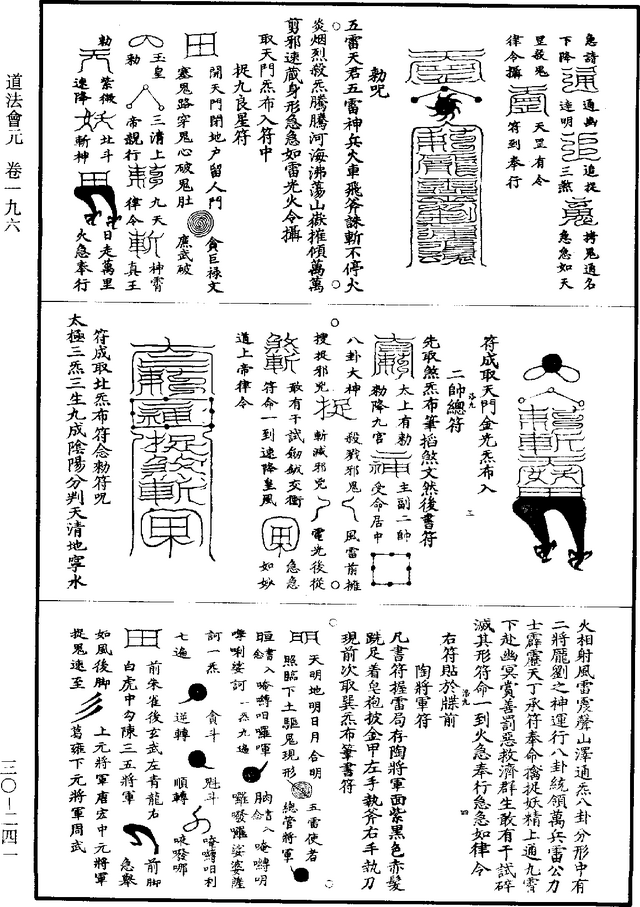 道法會元　卷一九六
三〇－二四一
急請
通幽
追捉
拷鬼通名
下降
達明
三煞
急急如天
罡殺鬼
天罡有令
律令攝
符到奉行
勅呪
五雷天君五雷神兵火車飛斧誅斬不停火
炎烟烈殺炁騰騰河海沸蕩山嶽摧傾萬萬
剪邪速藏身形急急如雷光火令攝
取天門炁布入符中
捉九良星符
開天門閉地户留人門
貪巨祿文
塞鬼路穿鬼心破鬼肚
廉武破
玉皇
勅
三清上
帝親行
九天
律令
神霄
真王
勅
紫微
速降
北斗
斬神
日走萬里
火急奉行
符成取天門金光炁布入
二帥總符
先取煞炁布筆掐煞文然後書符
太上有勅
勅降九宮
主副二帥
受命居中
八卦大神
殺戮邪鬼
風雷前擁
搜捉邪鬼
斬滅邪鬼
電光後從
敢有干試鈇鉞交衝
急急
符命一到速降皇風
如妙
道上帝律令
符成取北炁布符念勅符呪
太極三炁三生九成陰陽分判天清地寧水
火相射風雷震聲山澤通炁八卦分形中有
二將龐劉之神運行八卦統領萬兵雷公力
士霹靂天丁承符奉命擒捉妖精上通九霄
下赴幽冥賞善罰惡救濟群生敢有干試碎
滅其形符命一到火急奉行急急如律令
右符貼於牒前
陶將軍符
凡書符握雷局存陶將軍面紫黑色赤髮
跣足着皂袍披金甲左手執斧右手執刀
現前次取巽炁布筆書符
天明地明日月合明
五雷使者
照臨下土驅鬼現形
總管將軍
訶一炁
貪斗
魁斗
七遍
逆轉
順轉
前朱雀後玄武左青龍右
前脚
白虎中勾陳三五將軍
急舉
如風後脚
上元將軍唐宏中元將軍
捉鬼速至
葛雍下元將軍周武